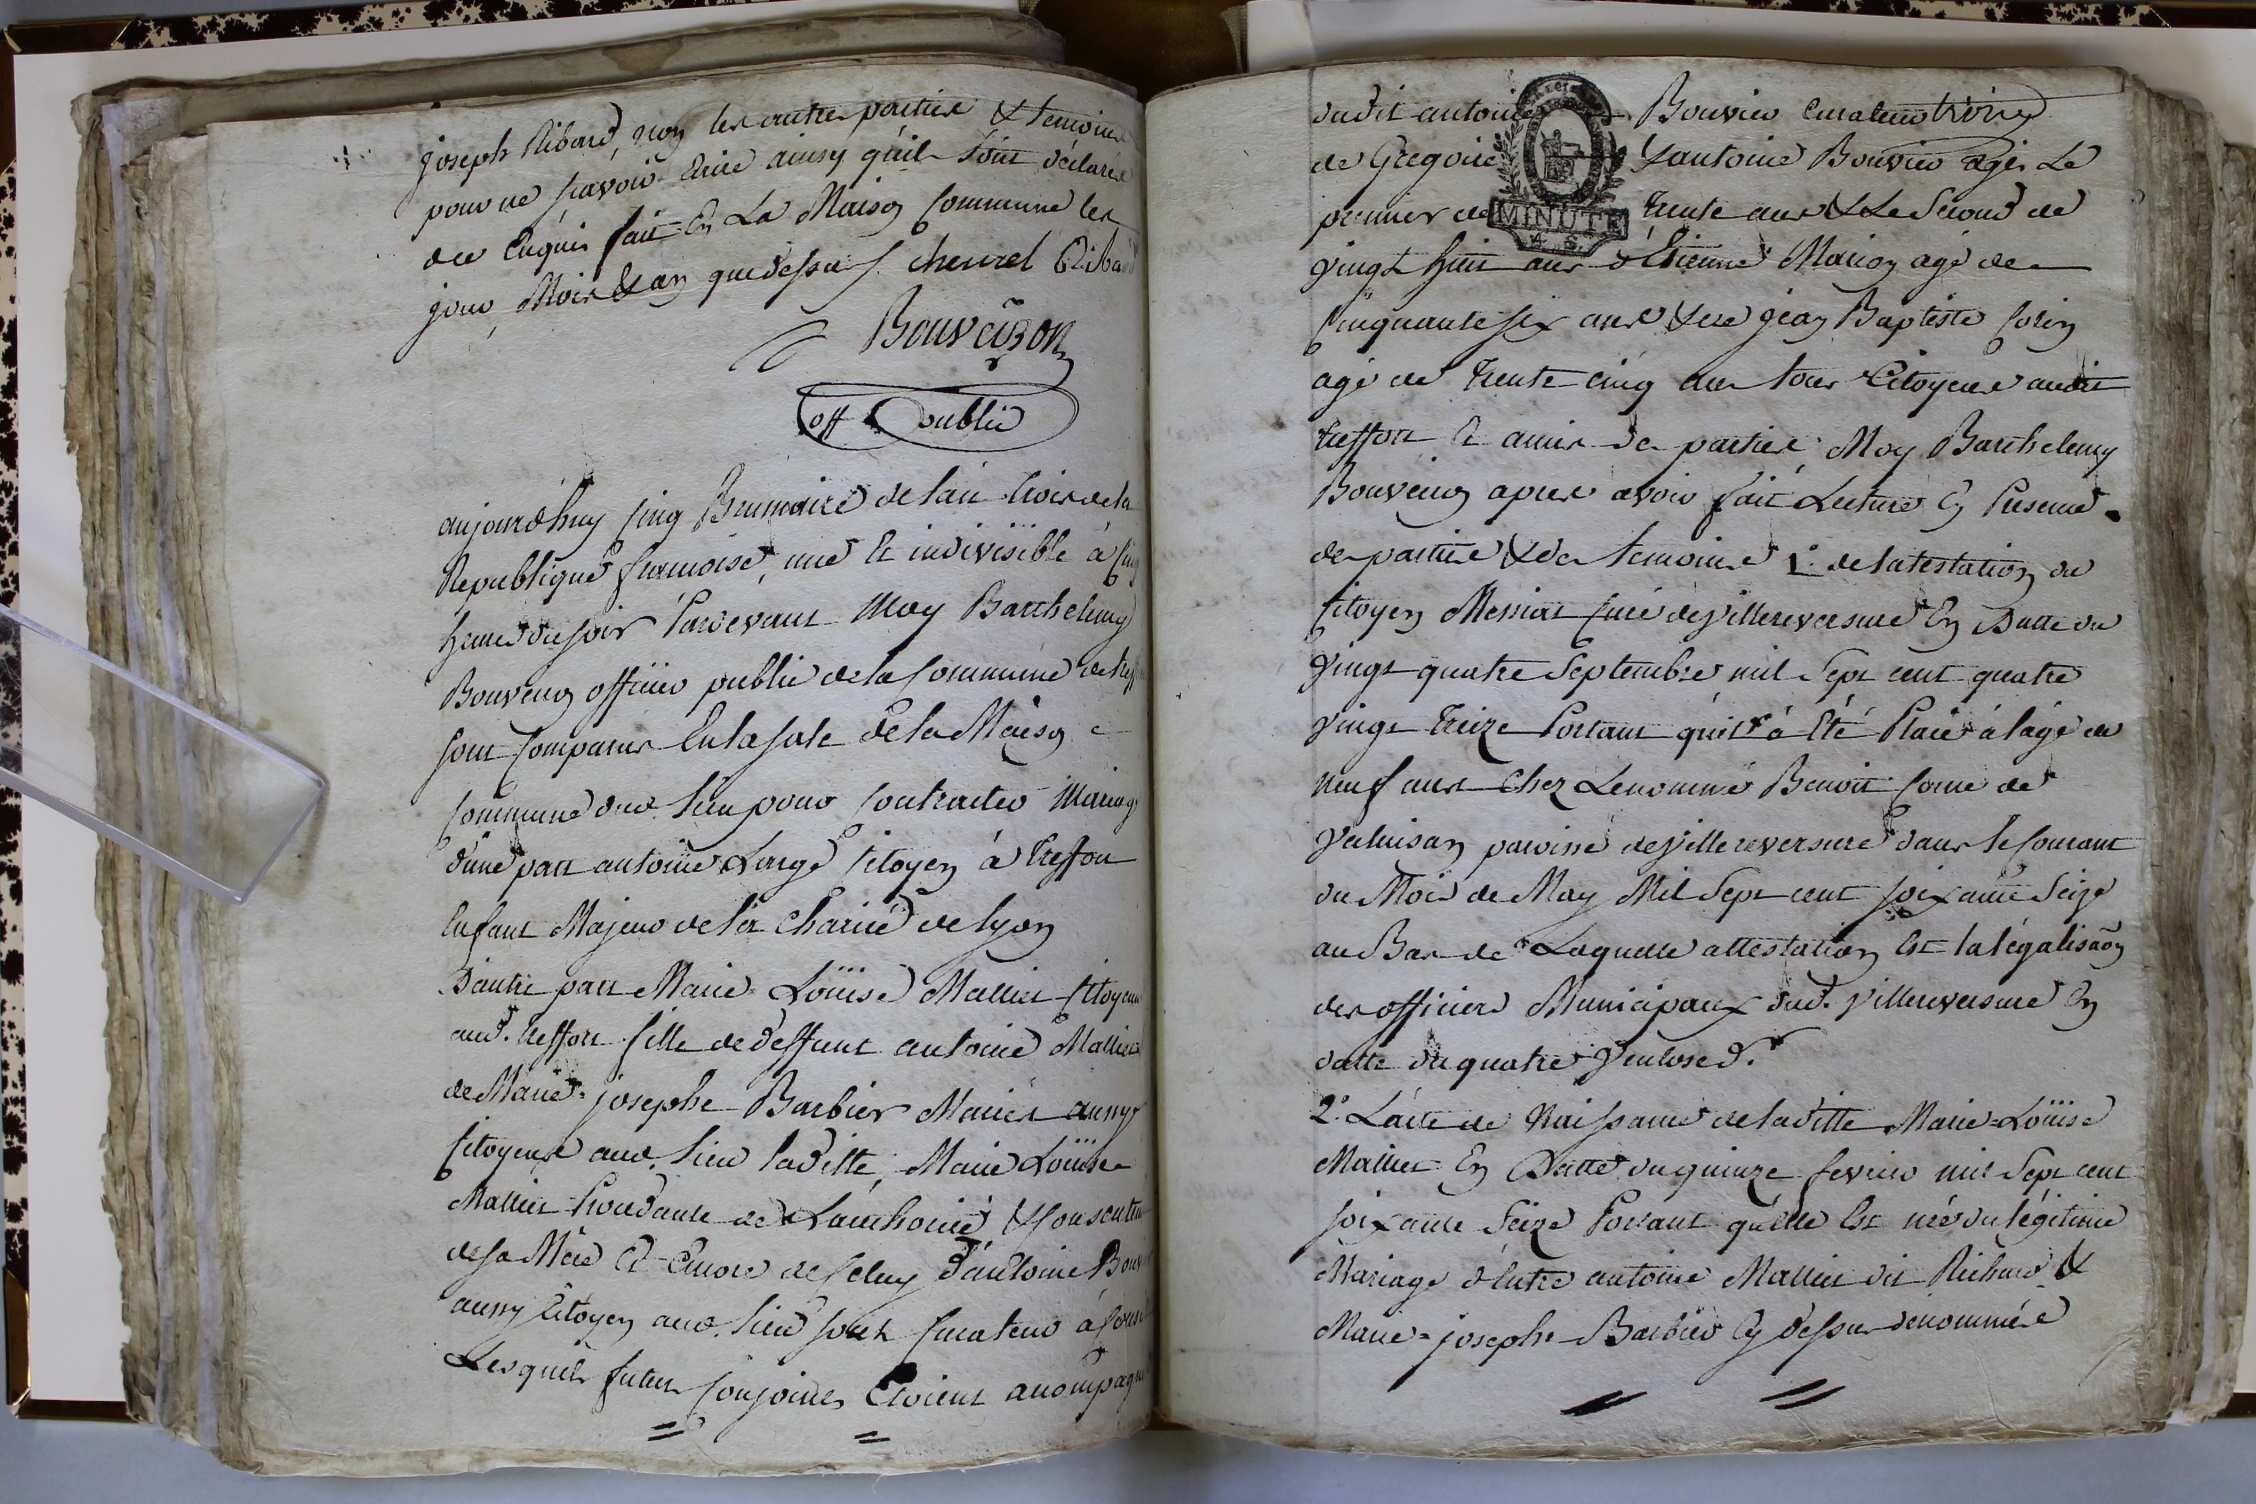 joseph Ribard, non les autres parties & temoins
pour ne sçavoir Ecrire ainsy qu'ils sont déclarés
de ce Enquis fait En La Maison Commune les
jour, Mois & an que dessus chenel Ribard
Bouveiron
off public
aujourd'huy cinq Brumaire de l'an trois de la
Republique françoise, une Et indivisible à cinq
heures du soir Pardevant Moy Barthelemy
Bouveiron officier public de la Commune de treff
sont Comparus En la sale de la Maison
Commune dud. Lieu pour Contracter Mariage
d'une part antoine Large Citoyen à Treffort
Enfant Majeur de la Charité de lyon
D'autre part Marie Loüise Malliet Citoyenne
aud. treffort fille de deffunt antoine Malliet
de Marie-josephe Barbier Mariés aussy
Citoyens aud. Lieu laditte, Marie Loüise
Malliet Procedante de L'authorité & Consentem
de sa Mère Et Encore de Celuy d'antoine Bouv
aussy Citoyen aud. Lieu son Curateur à Conse
Lesquels futurs Conjoints Etoient acompagn
dudit antoine Bouvier Curateur
de Gregoire & antoine Bouvier agés Le
premier de Trente ans & Le Second de
MINUTE
vingt huit ans d'Etienne Marion agé de
Cinquante six ans & de jean Baptiste Corin
agé de Trente cinq ans tous Citoyens audit
treffort Et amis des parties, Moy Barthelemy
Bouveiron apres avoir fait Lecture En Presence
des parties & des temoins 1.° de l'atestation du
Citoyen Messiat Curé de villereversure En Datte du
vingt quatre Septembre mil Sept cent quatre
vingt Treize Portant qu'il à Eté Placé à l'âge de
neuf ans Chez Le nommé Benoit Come de
paroisse de villereversure dans le Courant
du Mois de May Mil Sept cent soixante Seize
au Bas de Laquelle attestation Est la légalisaōn
des officiers Municipaux dud. villereversure En
datte du quatre Ventose d.r
2.° L'acte de Naissance de laditte Marie-Loüise
Malliet En Datte du quinze fevrier mil Sept cent
soixante Seize Portant qu'elle Est née du légitime
Mariage d'Entre antoine Malliet dit Richard &
Marie-josephe Barbier Cy dessus denommés